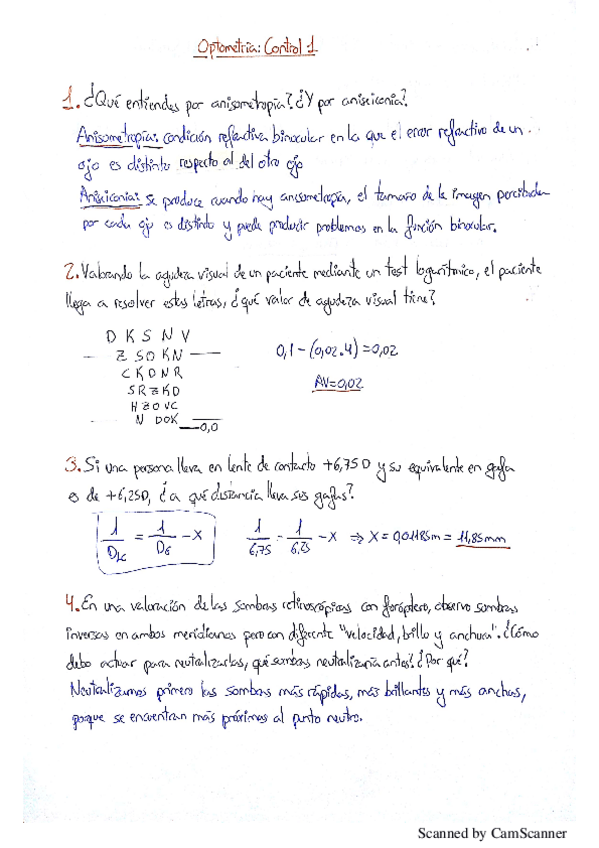 Optometría: Control 1
1. ¿Qué entiendes por anisometropía? ¿Y por aniseiconia?
Anisometropía: condición refractiva binocular en la que el error refractivo de un
ojo es distinto respecto al del otro ojo
Aniseiconia: se produce cuando hay anisometropía, el tamaño de la imagen percibida
por cada ojo es distinto y puede producir problemas en la función binocular.
2. Valorando la agudeza visual de un paciente mediante un test logarítmico, el paciente
llega a resolver estas letras, ¿qué valor de agudeza visual tiene?
D K S N V
Z S O K N
C K D N R
S R Z K D
H Z O V C
N D O K
0,0
0,1-(0,02.4)=0,02
AV=0,02
3. Si una persona lleva en lente de contacto +6,75D y su equivalente en gafa
es de +6,25D, ¿a qué distancia lleva sus gafas?
1/DLC = 1/DG - X
1/6,75 = 1/6,25 - X ⇒ X = 0,01185m = 11,85mm
4. En una valoración de las sombras retinoscópicas con foróptero, observo sombras
inversas en ambos meridianos pero con diferente "velocidad, brillo y anchura". ¿Cómo
debo actuar para neutralizarlas, qué sombras neutralizaría antes? ¿Por qué?
Neutralizamos primero las sombras más rápidas, más brillantes y más anchas,
porque se encuentran más próximas al punto neutro.
Scanned by CamScanner